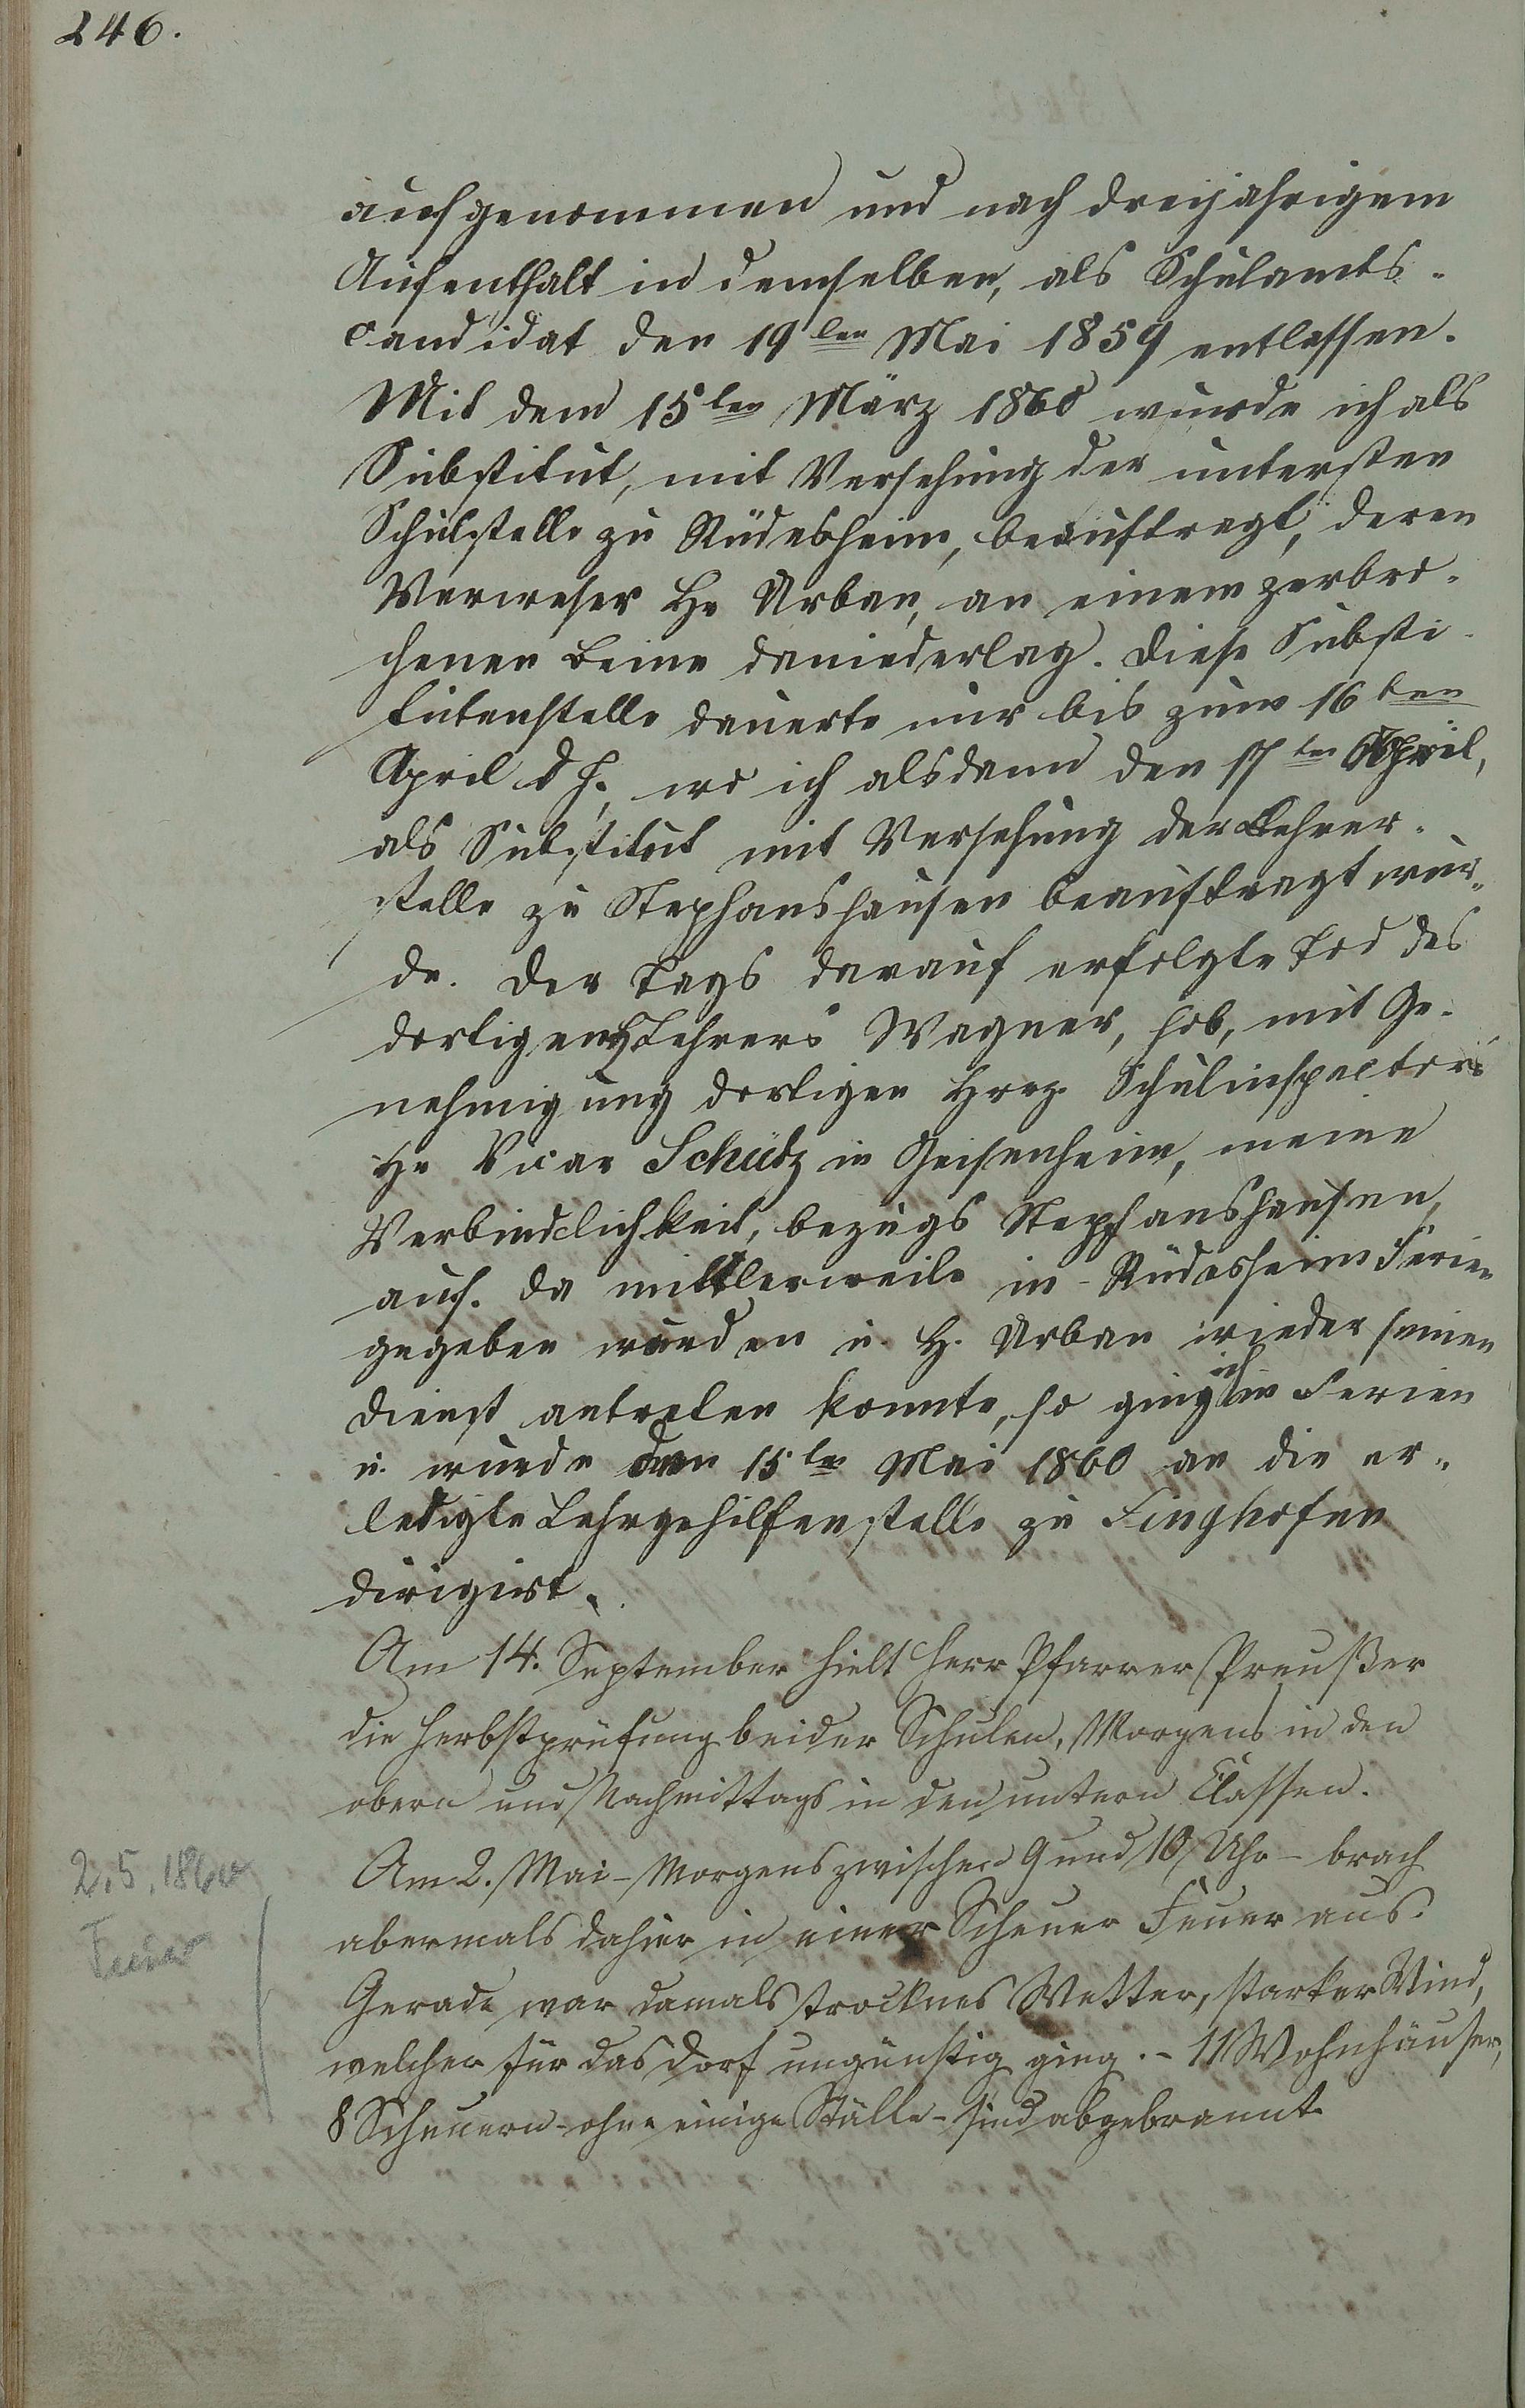 246.
aufgenommen und nach dreijahrigem
Aufenthalt in demselben, als Schulamts-
candidat den 19ten Mai 1859 entlassen.
Mit dem 15ten März 1860 wurde ich als
Substitut, mit Versehung der untersten
Schulstelle zu Rüdesheim, beauftragt, deren
Verweser Hr Urban, an einem zerbro-
chenen Beine daniederlag. Diese Substi-
tutenstelle dauerte nur bis zum 16ten
April d J., wo ich alsdann den 17ten April,
als Substitut mit Versehung der Lehrer-
stelle zu Stephanshausen beauftragt wur-
de. Der Tags darauf erfolgte Tod des
dortigen Lehrers Wagner, hob, mit Ge-
nehmigung dortigen Hrzg. Schulinspectors
Hr Vicar Schütz in Geisenheim, meine
Verbindlichkeit, bezugs Stephanshausen,
auf. Da mittlerweile in Rüdesheim Ferien
gegeben wurden u. H. Urban wieder seinen
Dienst antreten konnte, so ging ich in Ferien
u. wurde den 15ten Mai 1860 an die er-
ledigte Lehrgehilfenstelle zu Singhofen
dirigirt.
Am 14. September hielt Herr Pfarrer Preußer
die Herbstprüfung beider Schulen, Morgens in den
obern und Nachmittags in den untern Classen.
2.5.1860
Feuer
Am 2. Mai - Morgens zwischen 9 und 10 Uhr - brach
abermals dahier in einer Scheuer Feuer aus.
Gerade war damals trocknes Wetter, starker Wind,
welcher für das Dorf ungünstig ging. - 11 Wohnhäuser,
8 Scheuern - ohne einige Ställe - sind abgebrannt.